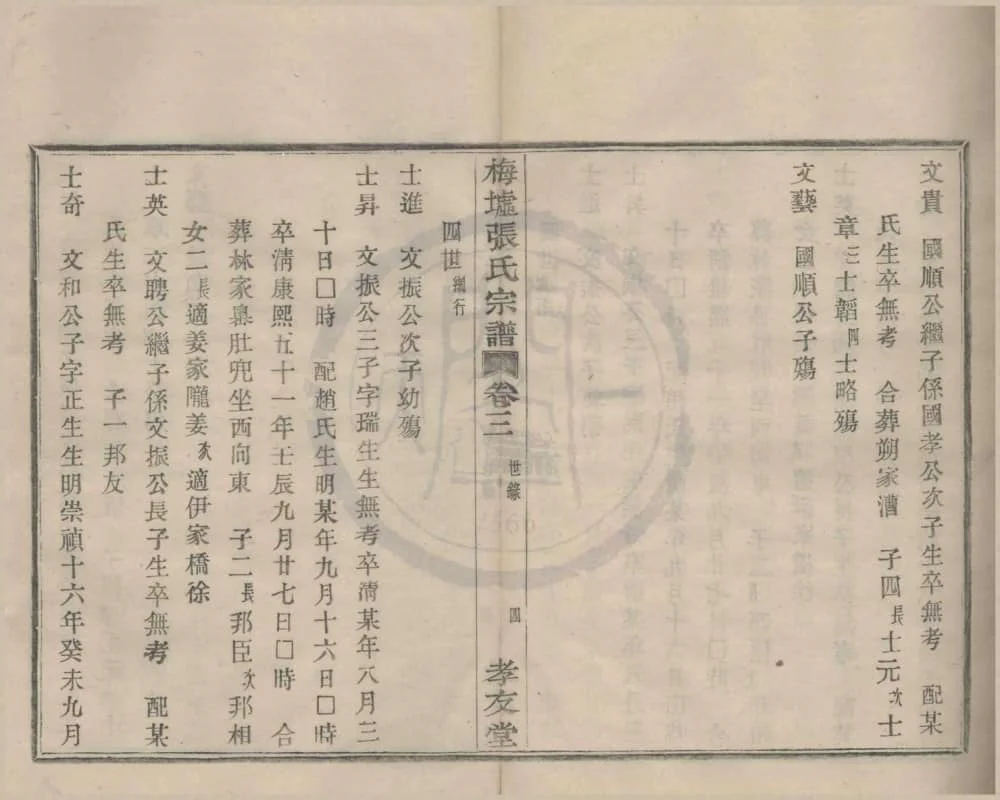 文貴　國順公繼子係國孝公次子生卒無考　配某
氏生卒無考　合葬朔家漕　子四長士元次士
章三士韜四士略殤
文藝　國順公子殤
梅墟張氏宗譜　卷三　世錄　四　孝友堂
四世　行
士進　文振公次子幼殤
士昇　文振公三子字瑞生生無考卒清某年八月三
十日□時　配趙氏生明某年九月十六日□時
卒清康熙五十一年壬辰九月廿七日□時　合
葬林家𡊩肚兜坐西向東　子二長邦臣次邦相
女二長適姜家隴姜次適伊家橋徐
士英　文聘公繼子係文振公長子生卒無考　配某
氏生卒無考　子一邦友
士奇　文和公子字正生生明崇禎十六年癸未九月